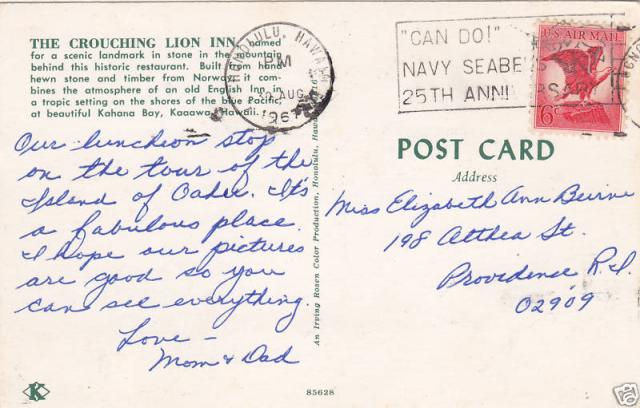 THE CROUCHING LION INN, named
for a scenic landmark in stone in the mountain
behind this historic restaurant. Built from hand
hewn stone and timber from Norway, it com-
bines the atmosphere of an old English Inn in
a tropic setting on the shores of the blue Pacific,
at beautiful Kahana Bay, Kaaawa, Hawaii.
HONOLULU, HAWAII
PM
30 AUG
1967
"CAN DO!"
NAVY SEABEES
25TH ANNIVERSARY
U.S. AIR MAIL
6¢
Our luncheon stop
on the tour of the
Island of Oahu. It's
a fabulous place.
I hope our pictures
are good so you
can see everything.
Love –
Mom & Dad
An Irving Rosen Color Production, Honolulu, Hawaii
POST CARD
Address
Miss Elizabeth Ann Beirne
198 Althea St.
Providence R.I.
02909
K
85628